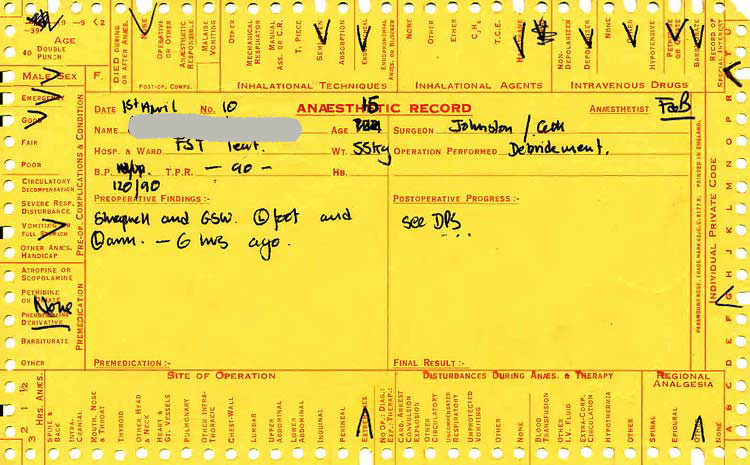 -39 -9 <2
40 DOUBLE PUNCH
AGE
MALE SEX F.
DIED DURING OR AFTER ANÆS.
NONE
OPERATIVE OR ANÆSTHETIC RESPONSIBLE
OTHER
MALAISE VOMITING
OTHER
POST-OP. COMPS.
MECHANICAL RESPIRATOR
MANUAL ASS. OR C.R.
T. PIECE
ABSORPTION
INHALATIONAL TECHNIQUES
NONE
OTHER
ETHER
C₃H₆
T.C.E.
INHALATIONAL AGENTS
NON-DEPOLARIZER
DEPOLARIZER
NONE
OTHER
HYPOTENSIVE
PETHIDINE OR OPIATE
BARBITURATE
INTRAVENOUS DRUGS
RECORD OF SPECIAL INTEREST
EMERGENCY
GOOD
FAIR
POOR
CIRCULATORY DECOMPENSATION
SEVERE RESP. DISTURBANCE
VOMITING OR FULL STOMACH
OTHER ANÆS. HANDICAP
PRE-OP. COMPLICATIONS & CONDITION
ATROPINE OR SCOPOLAMINE
PETHIDINE OR OPIATE
None
PHENOTHIAZINE DERIVATIVE
BARBITURATE
OTHER
PREMEDICATION
DATE 1st April No. 10 ANÆSTHETIC RECORD ANÆSTHETIST FoxB
NAME AGE 15 SURGEON Johnston / Cook
HOSP. & WARD FST Tent. WT. 55kg OPERATION PERFORMED Debridement.
B.P. 120/90 T.P.R. - 90 - HB.
PREOPERATIVE FINDINGS:- POSTOPERATIVE PROGRESS:-
Shrapnell and GSW. Ⓛ foot and see DPS
Ⓛ arm. - 6 hrs ago.
PREMEDICATION:- FINAL RESULT:-
PRINTED IN ENGLAND.
INDIVIDUAL PRIVATE CODE
SITE OF OPERATION
DISTURBANCES DURING ANÆS. & THERAPY
REGIONAL ANALGESIA
3 2 1 ½
HRS. ANÆS.
SPINE & BACK
INTRA-CRANIAL
MOUTH, NOSE & THROAT
THYROID
OTHER HEAD & NECK
HEART & GT. VESSELS
PULMONARY
OTHER INTRA-THORACIC
CHEST-WALL
LUMBAR
UPPER ABDOMINAL
LOWER ABDOMINAL
INGUINAL
PERINEAL
EXTREMITIES
NO OP.: DIAG.: EXP.: THERAP.
CARD. ARREST CONVULSION EXPLOSION
OTHER CIRCULATORY
UNCOMBINED RESPIRATORY
UNPROTECTED VOMITING
OTHER
NONE
BLOOD TRANSFUSION
OTHER I.V. FLUID
EXTRA-CORP. CIRCULATION
HYPOTHERMIA
OTHER
SPINAL
EPIDURAL
OTHER
NONE